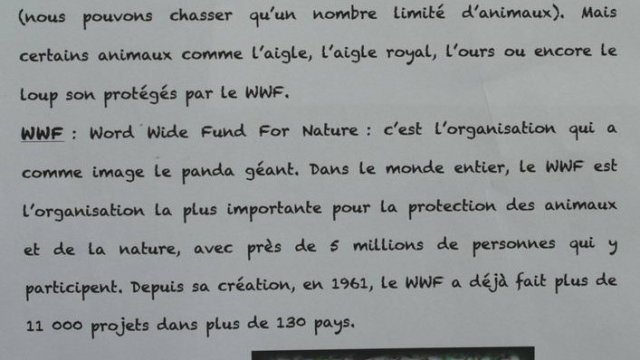 (nous pouvons chasser qu'un nombre limité d'animaux). Mais
certains animaux comme l'aigle, l'aigle royal, l'ours ou encore le
loup son protégés par le WWF.
WWF : Word Wide Fund For Nature : c'est l'organisation qui a
comme image le panda géant. Dans le monde entier, le WWF est
l'organisation la plus importante pour la protection des animaux
et de la nature, avec près de 5 millions de personnes qui y
participent. Depuis sa création, en 1961, le WWF a déjà fait plus de
11 000 projets dans plus de 130 pays.